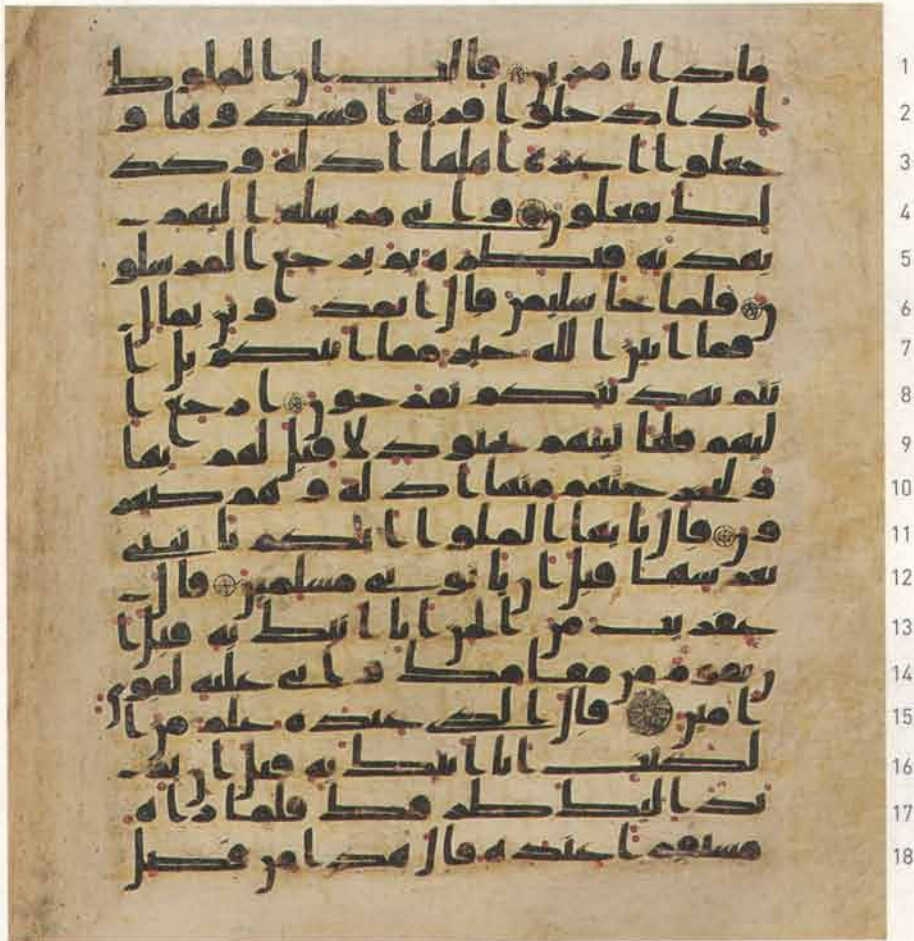 1 ماذا تامرين قالت ان الملوك
2 اذا دخلوا قرية افسدوها و
3 جعلوا اعزة اهلها اذلة وكذ
4 لك يفعلون واني مرسلة اليهم
5 بهدية فنظرة بم يرجع المرسلو
6 ن فلما جا سليمن قال اتمدونن بمال
7 فما اتين الله خير مما اتيكم بل ا
8 نتم بهديتكم تفرحون ارجع ا
9 ليهم فلناتينهم بجنود لا قبل لهم بها
10 ولنخرجنهم منها اذلة وهم صغر
11 ون قال يايها الملوا ايكم ياتيني
12 بعرشها قبل ان ياتوني مسلمين قال
13 عفريت من الجن انا اتيك به قبل ا
14 ن تقوم من مقامك واني عليه لقوي
15 امين قال الذي عنده علم من ا
16 لكتب انا اتيك به قبل ان ير
17 تد اليك طرفك فلما راه
18 مستقرا عنده قال هذا من فضل